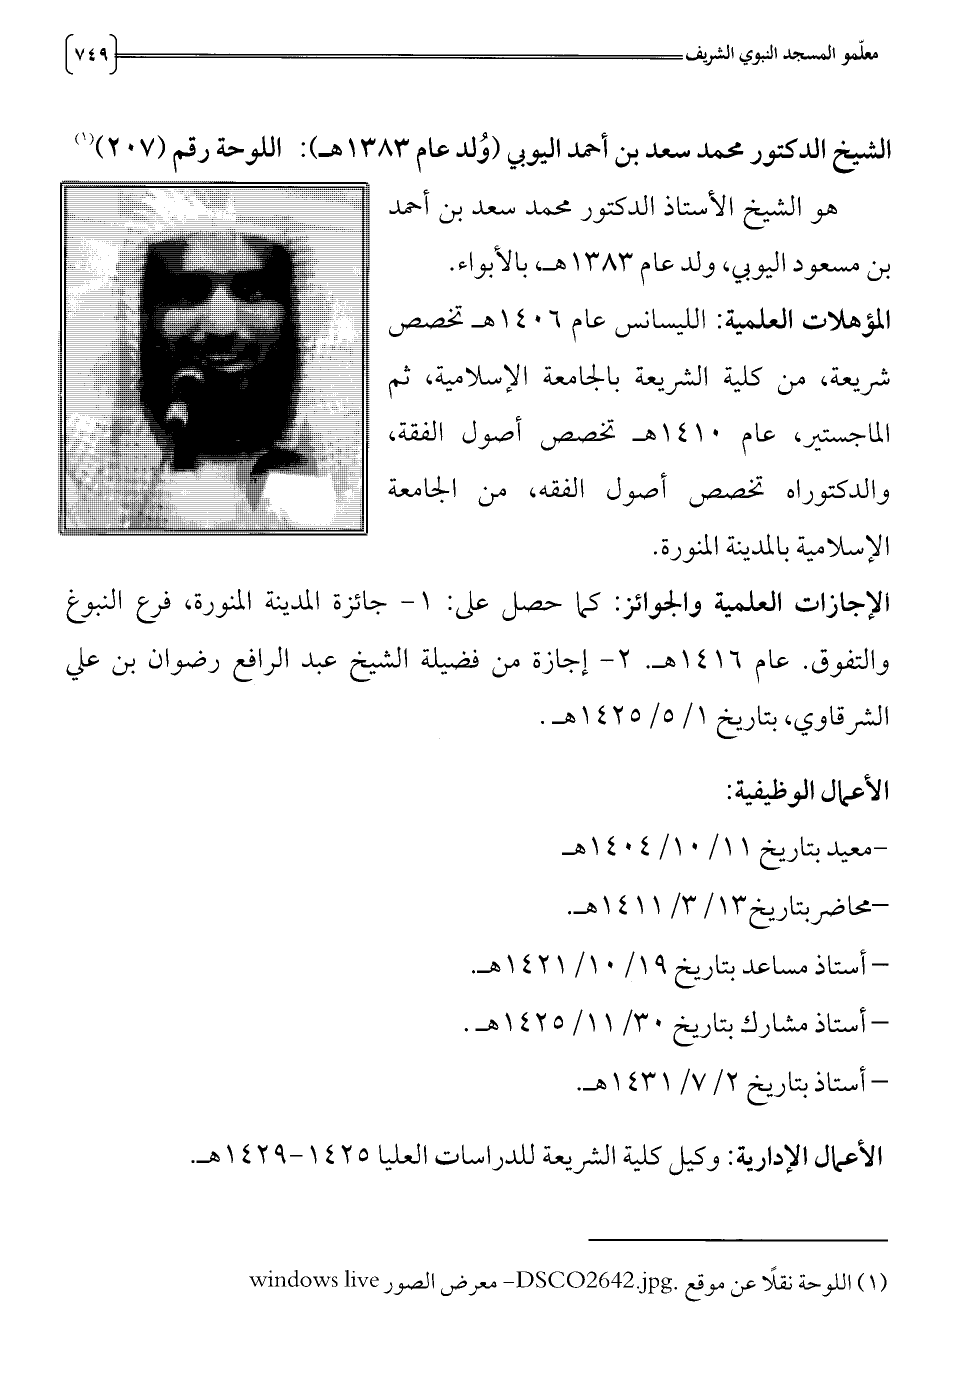 معلّمو المسجد النبوي الشريف
[٧٤٩]
الشيخ الدكتور محمد سعد بن أحمد اليوبي (وُلد عام ١٣٨٣هـ): اللوحة رقم (٢٠٧)(١)
هو الشيخ الأستاذ الدكتور محمد سعد بن أحمد
بن مسعود اليوبي، ولد عام ١٣٨٣هـ، بالأبواء.
المؤهلات العلمية: الليسانس عام ١٤٠٦هـ تخصص
شريعة، من كلية الشريعة بالجامعة الإسلامية، ثم
الماجستير، عام ١٤١٠هـ تخصص أصول الفقة،
والدكتوراه تخصص أصول الفقه، من الجامعة
الإسلامية بالمدينة المنورة.
الإجازات العلمية والجوائز: كما حصل على: ١- جائزة المدينة المنورة، فرع النبوغ
والتفوق. عام ١٤١٦هـ. ٢- إجازة من فضيلة الشيخ عبد الرافع رضوان بن علي
الشرقاوي، بتاريخ ١/ ٥/ ١٤٢٥هـ.
الأعمال الوظيفية:
-معيد بتاريخ ١١/ ١٠/ ١٤٠٤هـ
-محاضر بتاريخ١٣/ ٣/ ١٤١١هـ.
- أستاذ مساعد بتاريخ ١٩/ ١٠/ ١٤٢١هـ.
- أستاذ مشارك بتاريخ ٣٠/ ١١/ ١٤٢٥هـ.
- أستاذ بتاريخ ٢/ ٧/ ١٤٣١هـ.
الأعمال الإدارية: وكيل كلية الشريعة للدراسات العليا ١٤٢٥-١٤٢٩هـ.
(١) اللوحة نقلًا عن موقع .DSCO2642.jpg- معرض الصور windows live